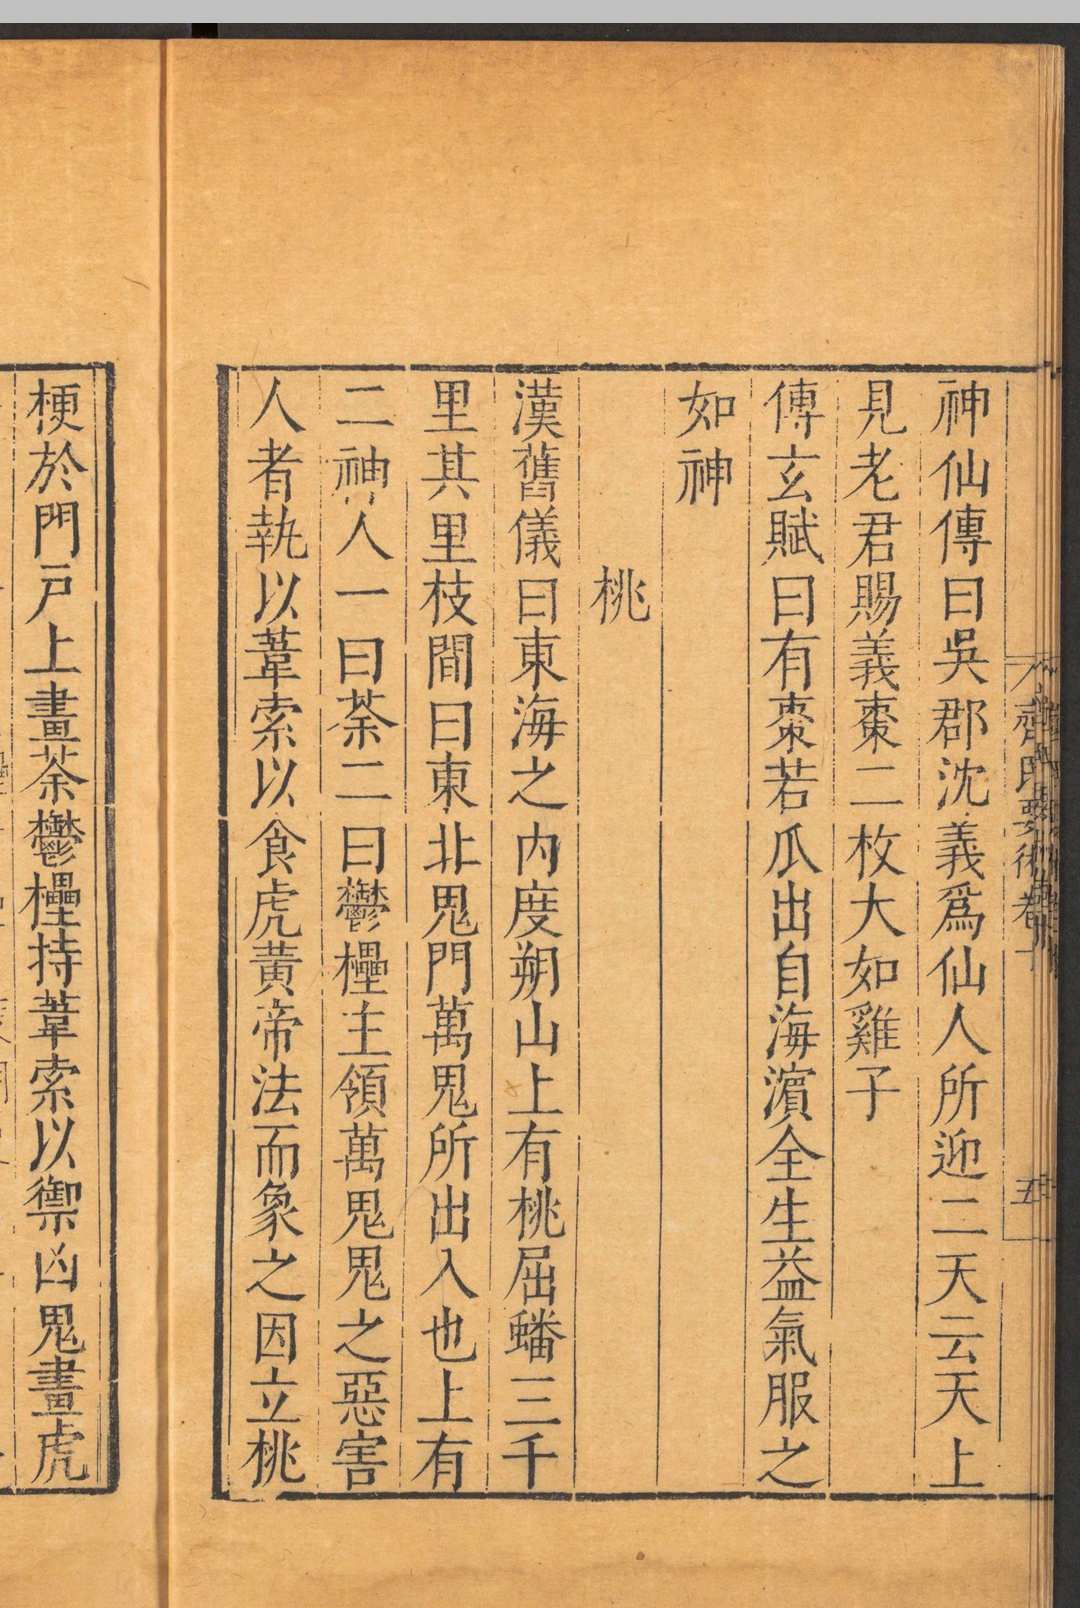 齊民要術卷十
五
神仙傳曰吳郡沈羲爲仙人所迎二天云天上
見老君賜羲棗二枚大如雞子
傅玄賦曰有棗若瓜出自海濵全生益氣服之
如神
桃
漢舊儀曰東海之内度朔山上有桃屈蟠三千
里其里枝間曰東北鬼門萬鬼所出入也上有
二神人一曰荼二曰鬱櫑主領萬鬼鬼之惡害
人者執以葦索以食虎黃帝法而象之因立桃
梗於門戸上畫荼鬱櫑持葦索以禦凶鬼畫虎